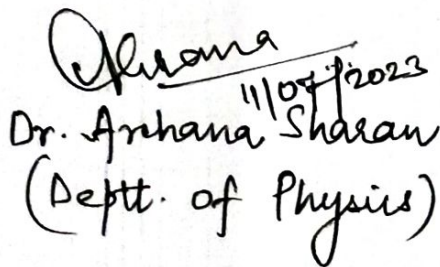 Archana
11/07/2023
Dr. Archana Sharan
(Deptt. of Physics)